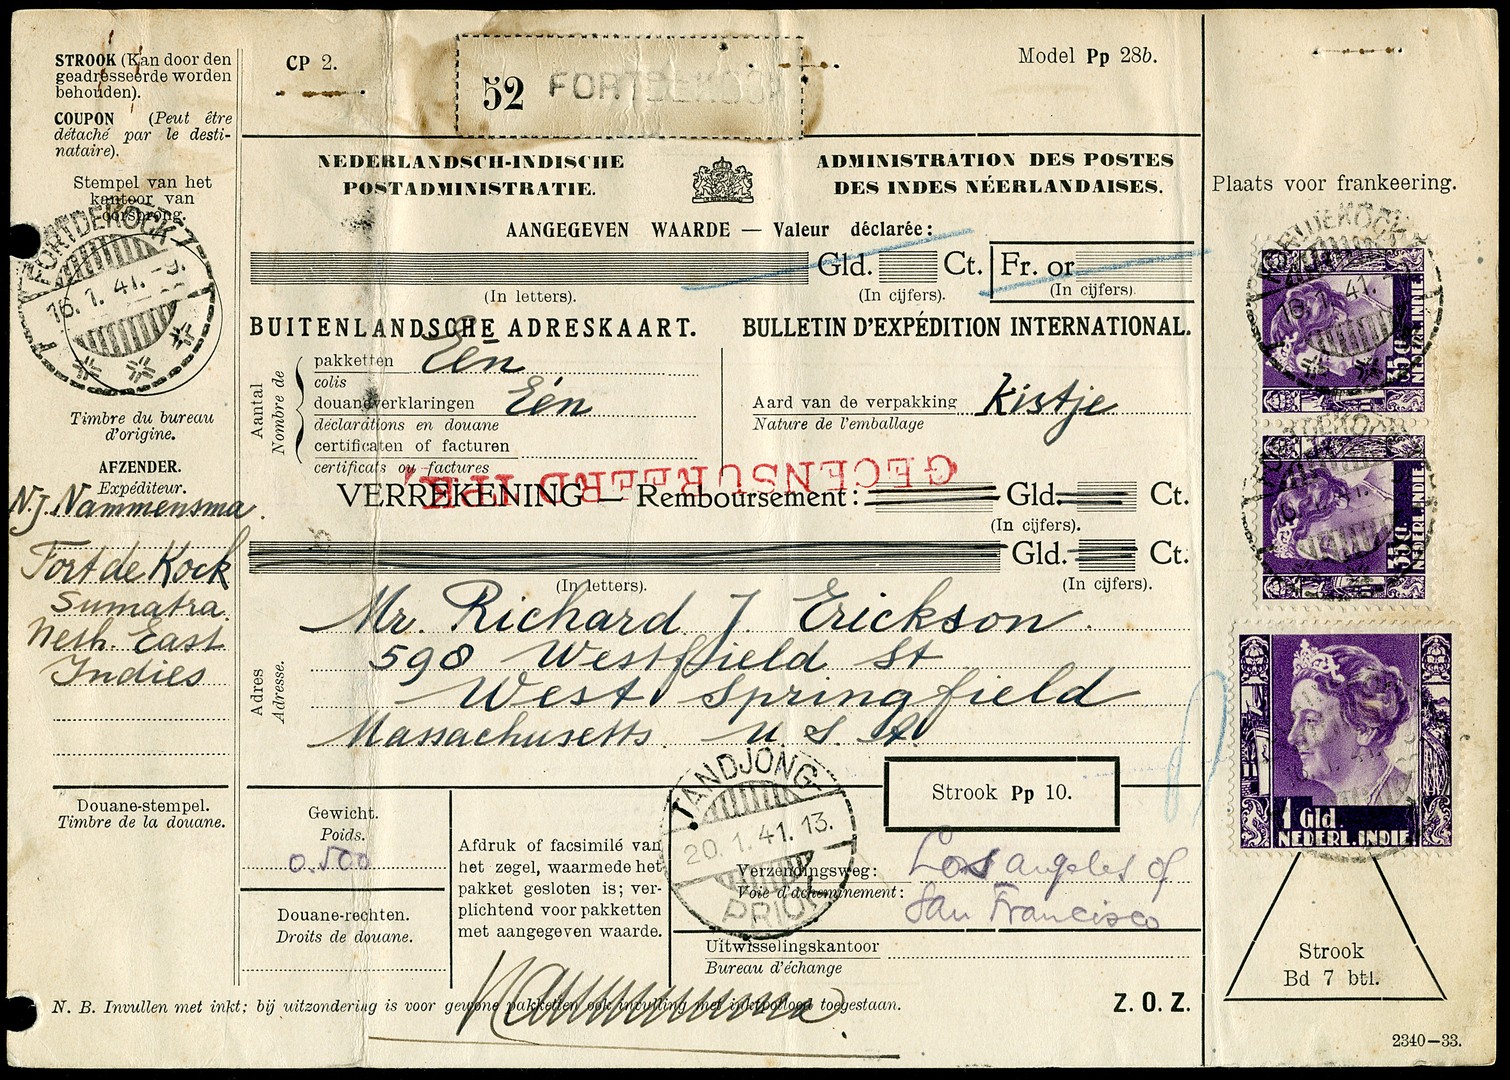 STROOK (Kan door den
geadresseerde worden
behouden).
COUPON (Peut être
détaché par le desti-
nataire).
Stempel van het
kantoor van
oorsprong.
FORTDEKOCK
16.1.41.
Timbre du bureau
d'origine.
AFZENDER.
Expéditeur.
N.J. Nammensma.
Fort de Kock
Sumatra
Neth. East
Indies
Douane-stempel.
Timbre de la douane.
CP 2.
52 FORTDEKOCK
Model Pp 28b.
NEDERLANDSCH-INDISCHE
POSTADMINISTRATIE.
ADMINISTRATION DES POSTES
DES INDES NÉERLANDAISES.
AANGEGEVEN WAARDE — Valeur déclarée:
Gld. Ct. Fr. or
(In letters). (In cijfers). (In cijfers).
BUITENLANDSCHE ADRESKAART.
BULLETIN D'EXPÉDITION INTERNATIONAL.
Aantal
Nombre de
pakketten Eén
colis
douaneverklaringen Eén
déclarations en douane
certificaten of facturen
certificats ou factures
Aard van de verpakking Kistje
Nature de l'emballage
GECENSUREERD
VERREKENING — Remboursement: Gld. Ct.
(In cijfers).
Gld. Ct.
(In letters). (In cijfers).
Adres
Adresse.
Mr. Richard J. Erickson
598 Westffield St
West Springfield
Massachusetts. U. S. A.
Gewicht.
Poids.
0.500
Douane-rechten.
Droits de douane.
Afdruk of facsimilé van
het zegel, waarmede het
pakket gesloten is; ver-
plichtend voor pakketten
met aangegeven waarde.
TANDJONG
20.1.41.13.
PRIOK
Strook Pp 10.
Verzendingsweg: Los Angeles of
Voie d'acheminement: San Francisco
Uitwisselingskantoor
Bureau d'échange
N. B. Invullen met inkt; bij uitzondering is voor gewone pakketten ook invulling met inktpotlood toegestaan.
Z. O. Z.
Plaats voor frankeering.
FORTDEKOCK
16.1.41.
35 C.
NEDERL. INDIE
FORTDEKOCK
16.1.41.
35 C.
NEDERL. INDIE
1 Gld.
NEDERL. INDIE
Strook
Bd 7 btl.
2340—33.